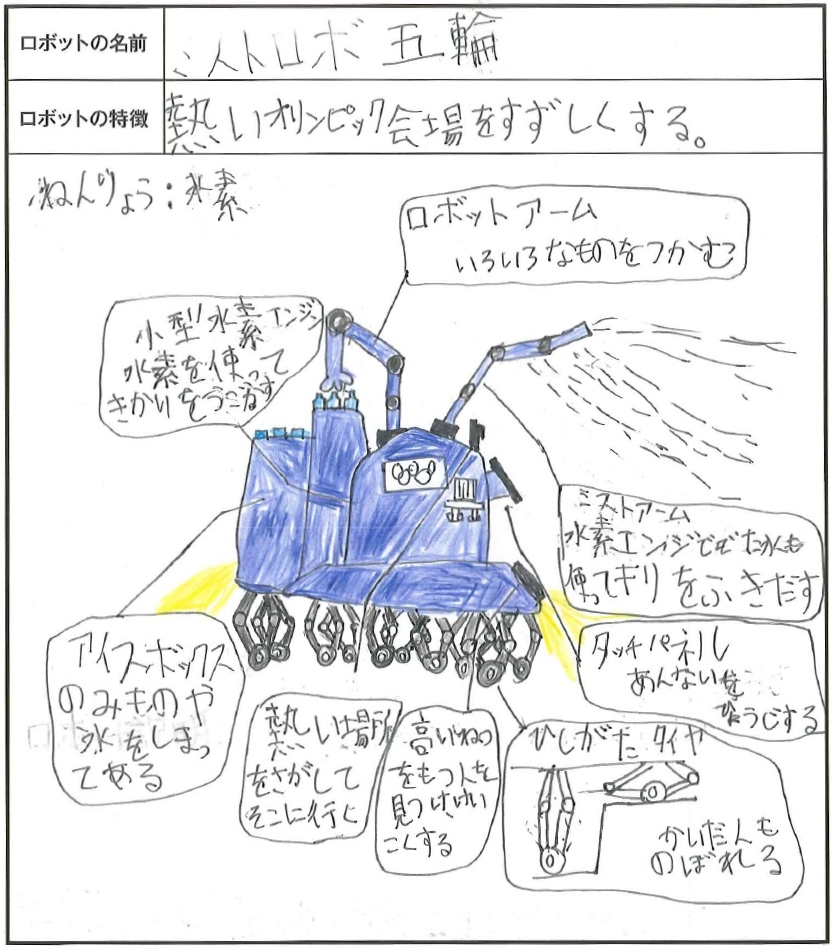 ロボットの名前
ミストロボ 五輪
ロボットの特徴
熱いオリンピック会場をすずしくする。
ねんりょう:水素
ロボットアーム
いろいろなものをつかむ
小型水素エンジン
水素を使って
きかいをうごかす
ミストアーム
水素エンジンででた水も
使ってキリをふきだす
タッチパネル
あんないを
ひょうじする
アイスボックス
のみものや
氷をしまっ
てある
熱い場所
をさがして
そこに行く
高いねつ
をもつ人を
見つけけい
こくする
ひしがたタイヤ
かいだんも
のぼれる